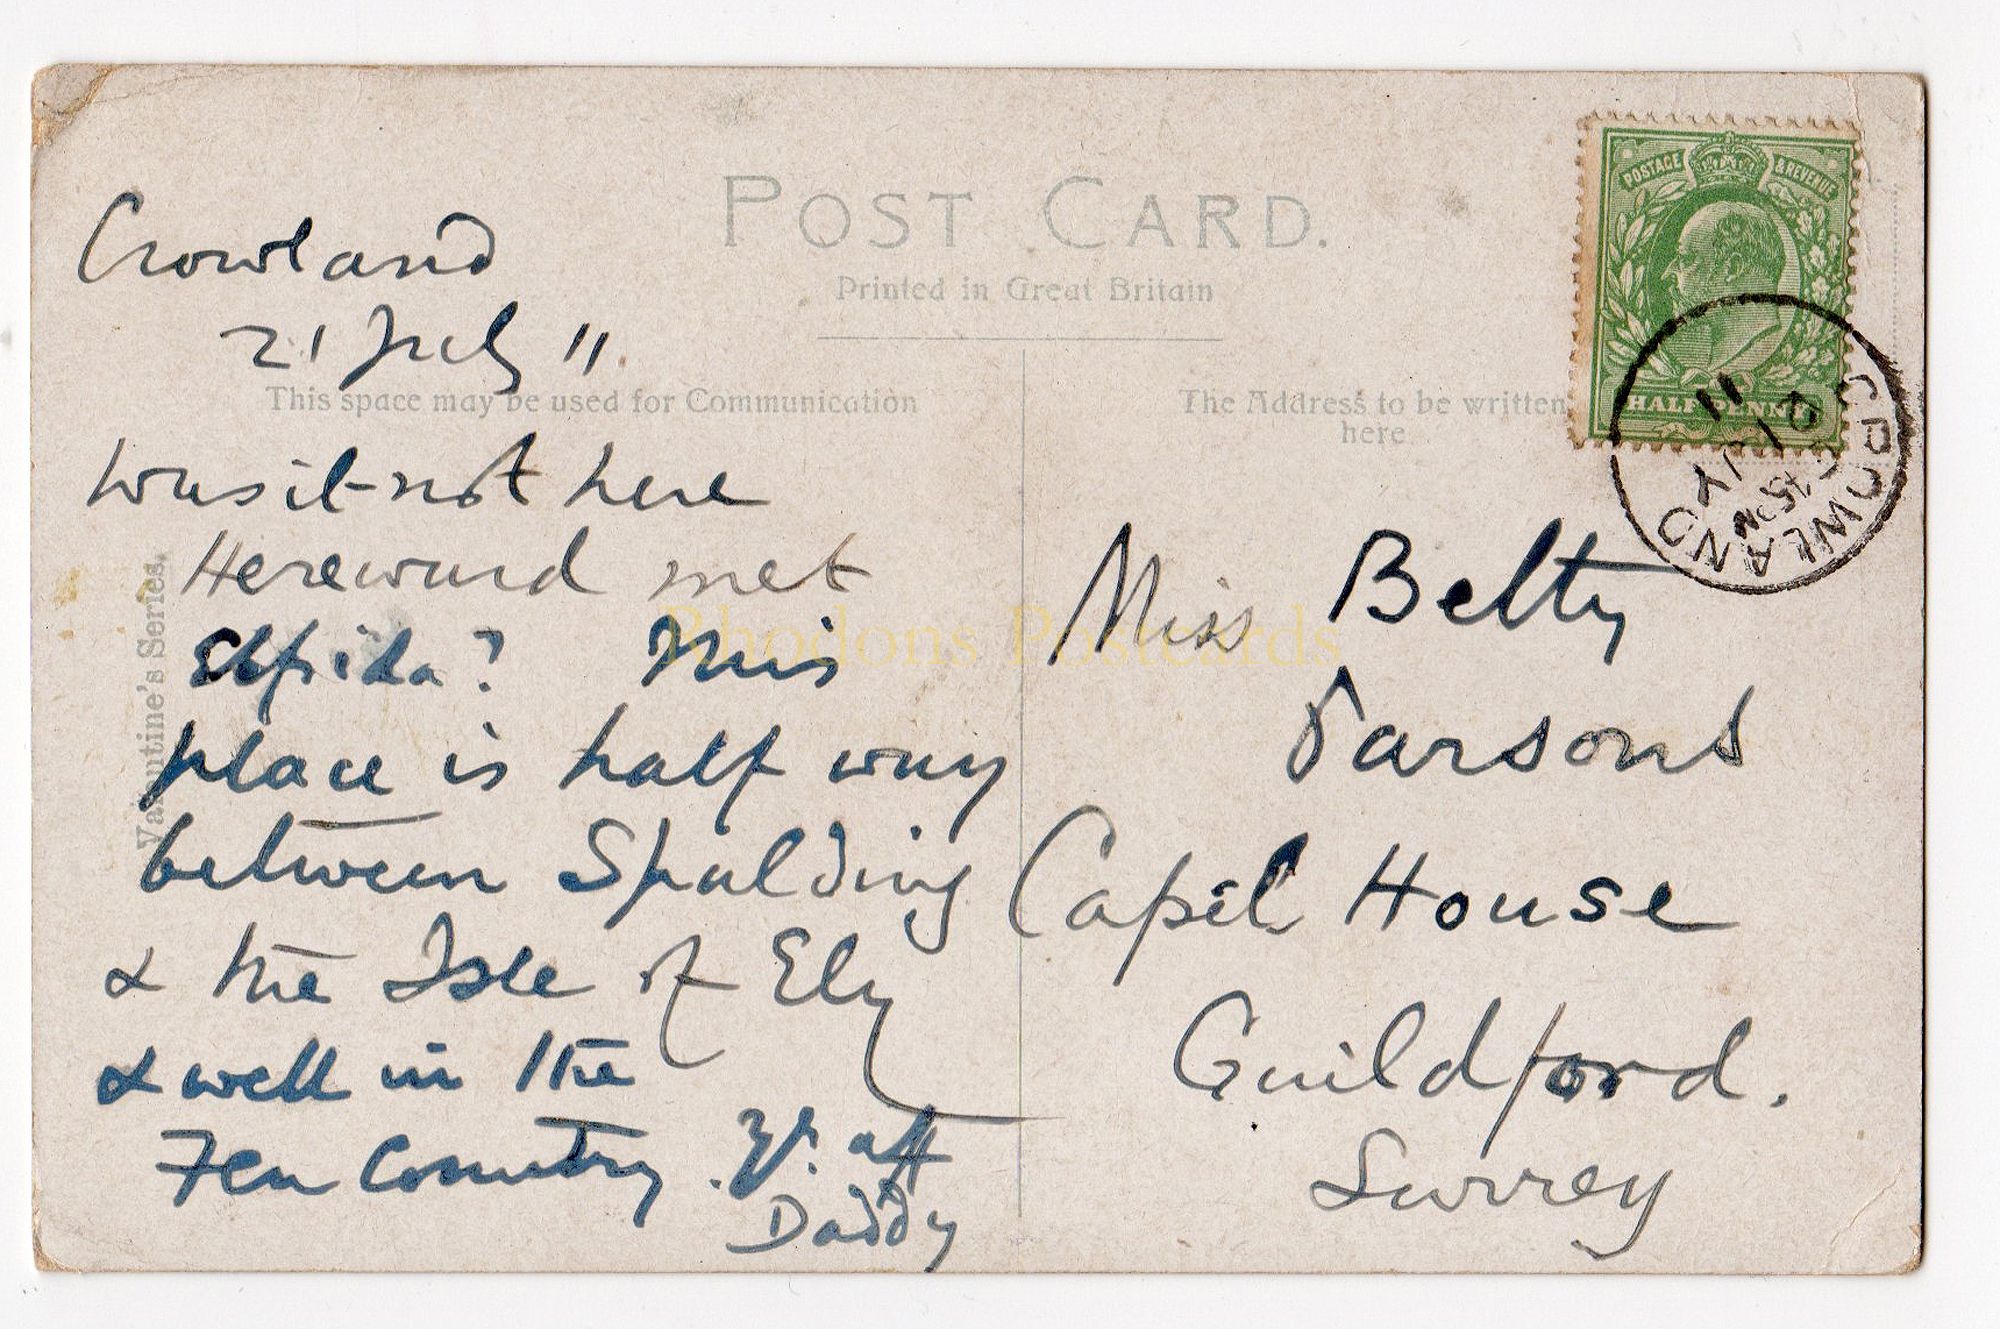 POST CARD.
Printed in Great Britain
This space may be used for Communication
The Address to be written
here
Valentine's Series.
Crowland
21 July 11
Was it not here
Hereward met
Elfrida? This
place is half way
between Spalding
& the Isle of Ely
& well in the
Fen Country. Yr. aff
Daddy
Miss Betty
Parsons
Capel House
Guildford.
Surrey
POSTAGE & REVENUE
HALF PENNY
CROWLAND
JY
11
Rhodons Postcards